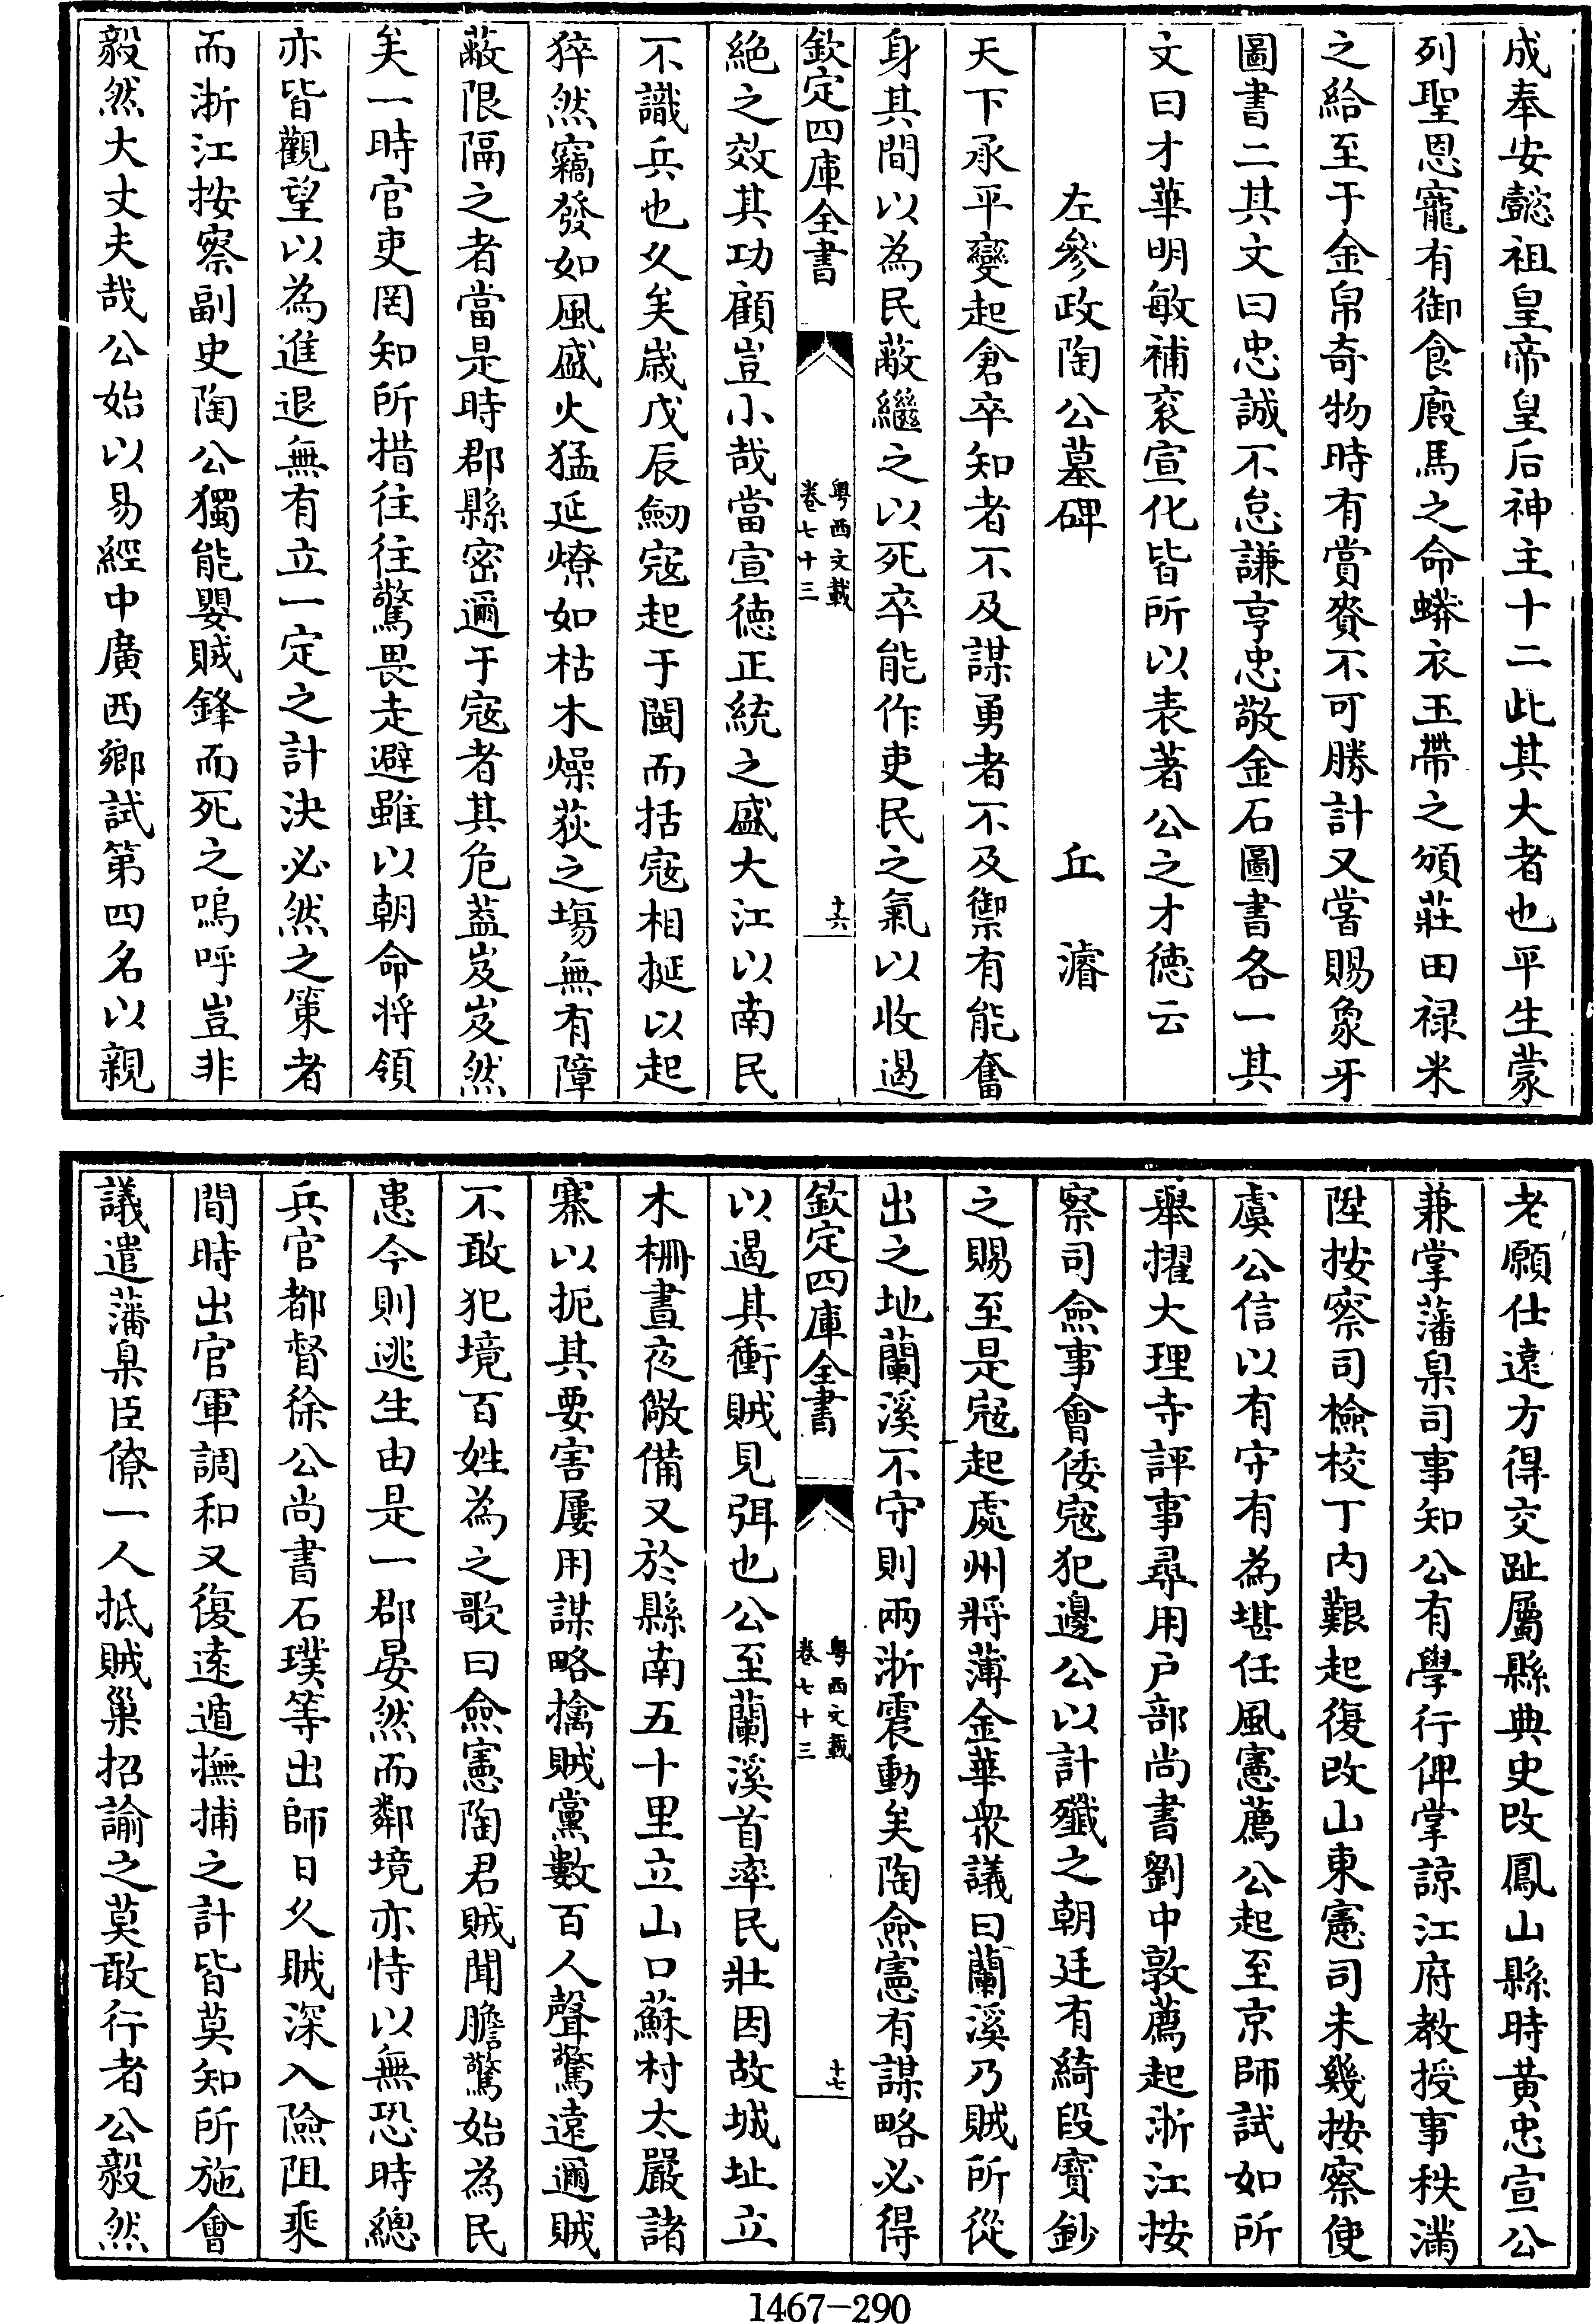 成奉安懿祖皇帝皇后神主十二此其大者也平生蒙
列聖恩寵有御食廐馬之命蟒衣玉帶之頒莊田禄米
之給至于金帛奇物時有賞賚不可勝計又嘗賜象牙
圖書二其文曰忠誠不怠謙亨忠敬金石圖書各一其
文曰才華明敏補衮宣化皆所以表著公之才徳云
左參政陶公墓碑 丘濬
天下承平變起倉卒知者不及謀勇者不及禦有能奮
身其間以為民蔽繼之以死卒能作吏民之氣以收遏
欽定四庫全書
粤西文載
卷七十三
十六
絶之效其功顧豈小哉當宣徳正統之盛大江以南民
不識兵也久矣歳戊辰劒寇起于閩而括寇相挻以起
猝然竊發如風盛火猛延燎如枯木燥荻之塲無有障
蔽限隔之者當是時郡縣密邇于寇者其危葢岌岌然
矣一時官吏罔知所措往往驚畏走避雖以朝命将領
亦皆觀望以為進退無有立一定之計決必然之策者
而浙江按察副史陶公獨能嬰賊鋒而死之嗚呼豈非
毅然大丈夫哉公始以易經中廣西鄉試第四名以親
老願仕遠方得交趾屬縣典史改鳳山縣時黄忠宣公
兼掌藩臬司事知公有學行俾掌諒江府教授事秩滿
陞按察司檢校丁内艱起復改山東憲司未幾按察使
虞公信以有守有為堪任風憲薦公起至京師試如所
舉擢大理寺評事尋用户部尚書劉中敦薦起浙江按
察司僉事會倭寇犯邊公以計殲之朝廷有綺段寶鈔
之賜至是寇起處州將薄金華衆議曰蘭溪乃賊所從
出之地蘭溪不守則兩浙震動矣陶僉憲有謀略必得
欽定四庫全書
粤西文載
卷七十三
十七
以遏其衝賊見弭也公至蘭溪首率民壯因故城址立
木柵晝夜儆備又於縣南五十里立山口蘇村太嚴諸
寨以扼其要害屢用謀略擒賊黨數百人聲驚遠邇賊
不敢犯境百姓為之歌曰僉憲陶君賊聞膽驚始為民
患今則逃生由是一郡晏然而鄰境亦恃以無恐時總
兵官都督徐公尚書石璞等出師日久賊深入險阻乘
間時出官軍調和又復遠遁撫捕之計皆莫知所施會
議遣藩臬臣僚一人抵賊巢招諭之莫敢行者公毅然
1467-290